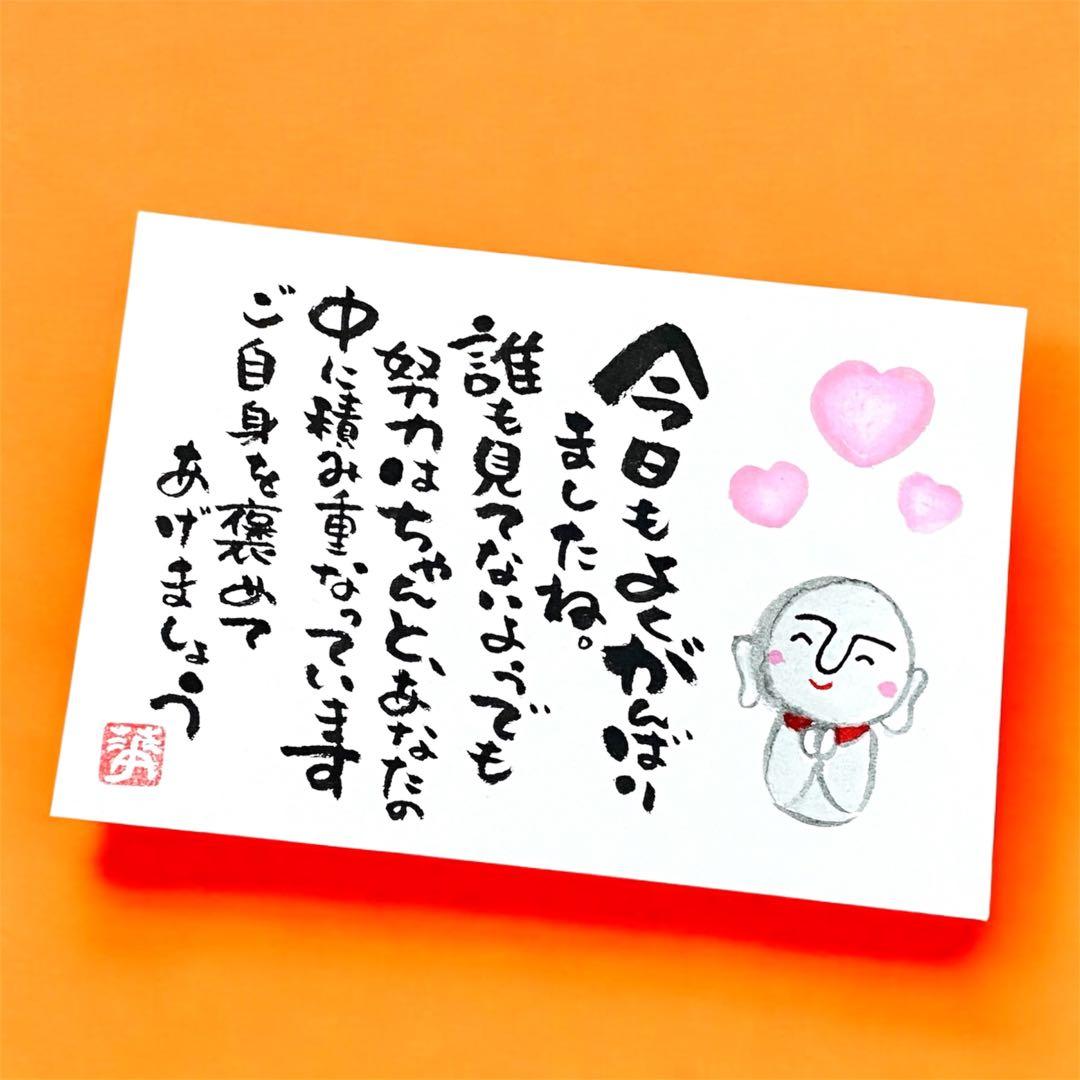 今日もよくがんばり
ましたね。
誰も見てないよっでも
努力はちゃんと、あなたの
中に積み重なっています
ご自身を褒めて
あげましょう